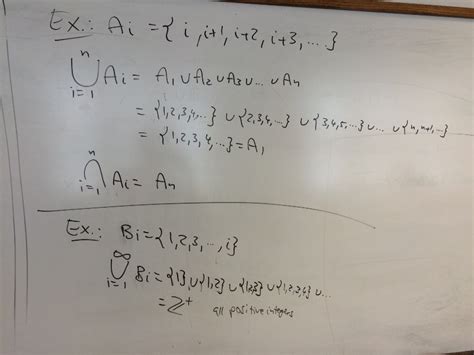 Ex.: Ai = {i, i+1, i+2, i+3, ...}
n
⋃ Ai = A1 ∪ A2 ∪ A3 ∪ ... ∪ An
i=1
= {1,2,3,4,...} ∪ {2,3,4,...} ∪ {3,4,5,...} ∪ ... ∪ {n, n+1, ...}
= {1,2,3,4,...} = A1
n
⋂ Ai = An
i=1
Ex.: Bi = {1,2,3,...,i}
∞
⋃ Bi = {1} ∪ {1,2} ∪ {1,2,3} ∪ {1,2,3,4} ∪ ...
i=1
= ℤ+ all positive integers